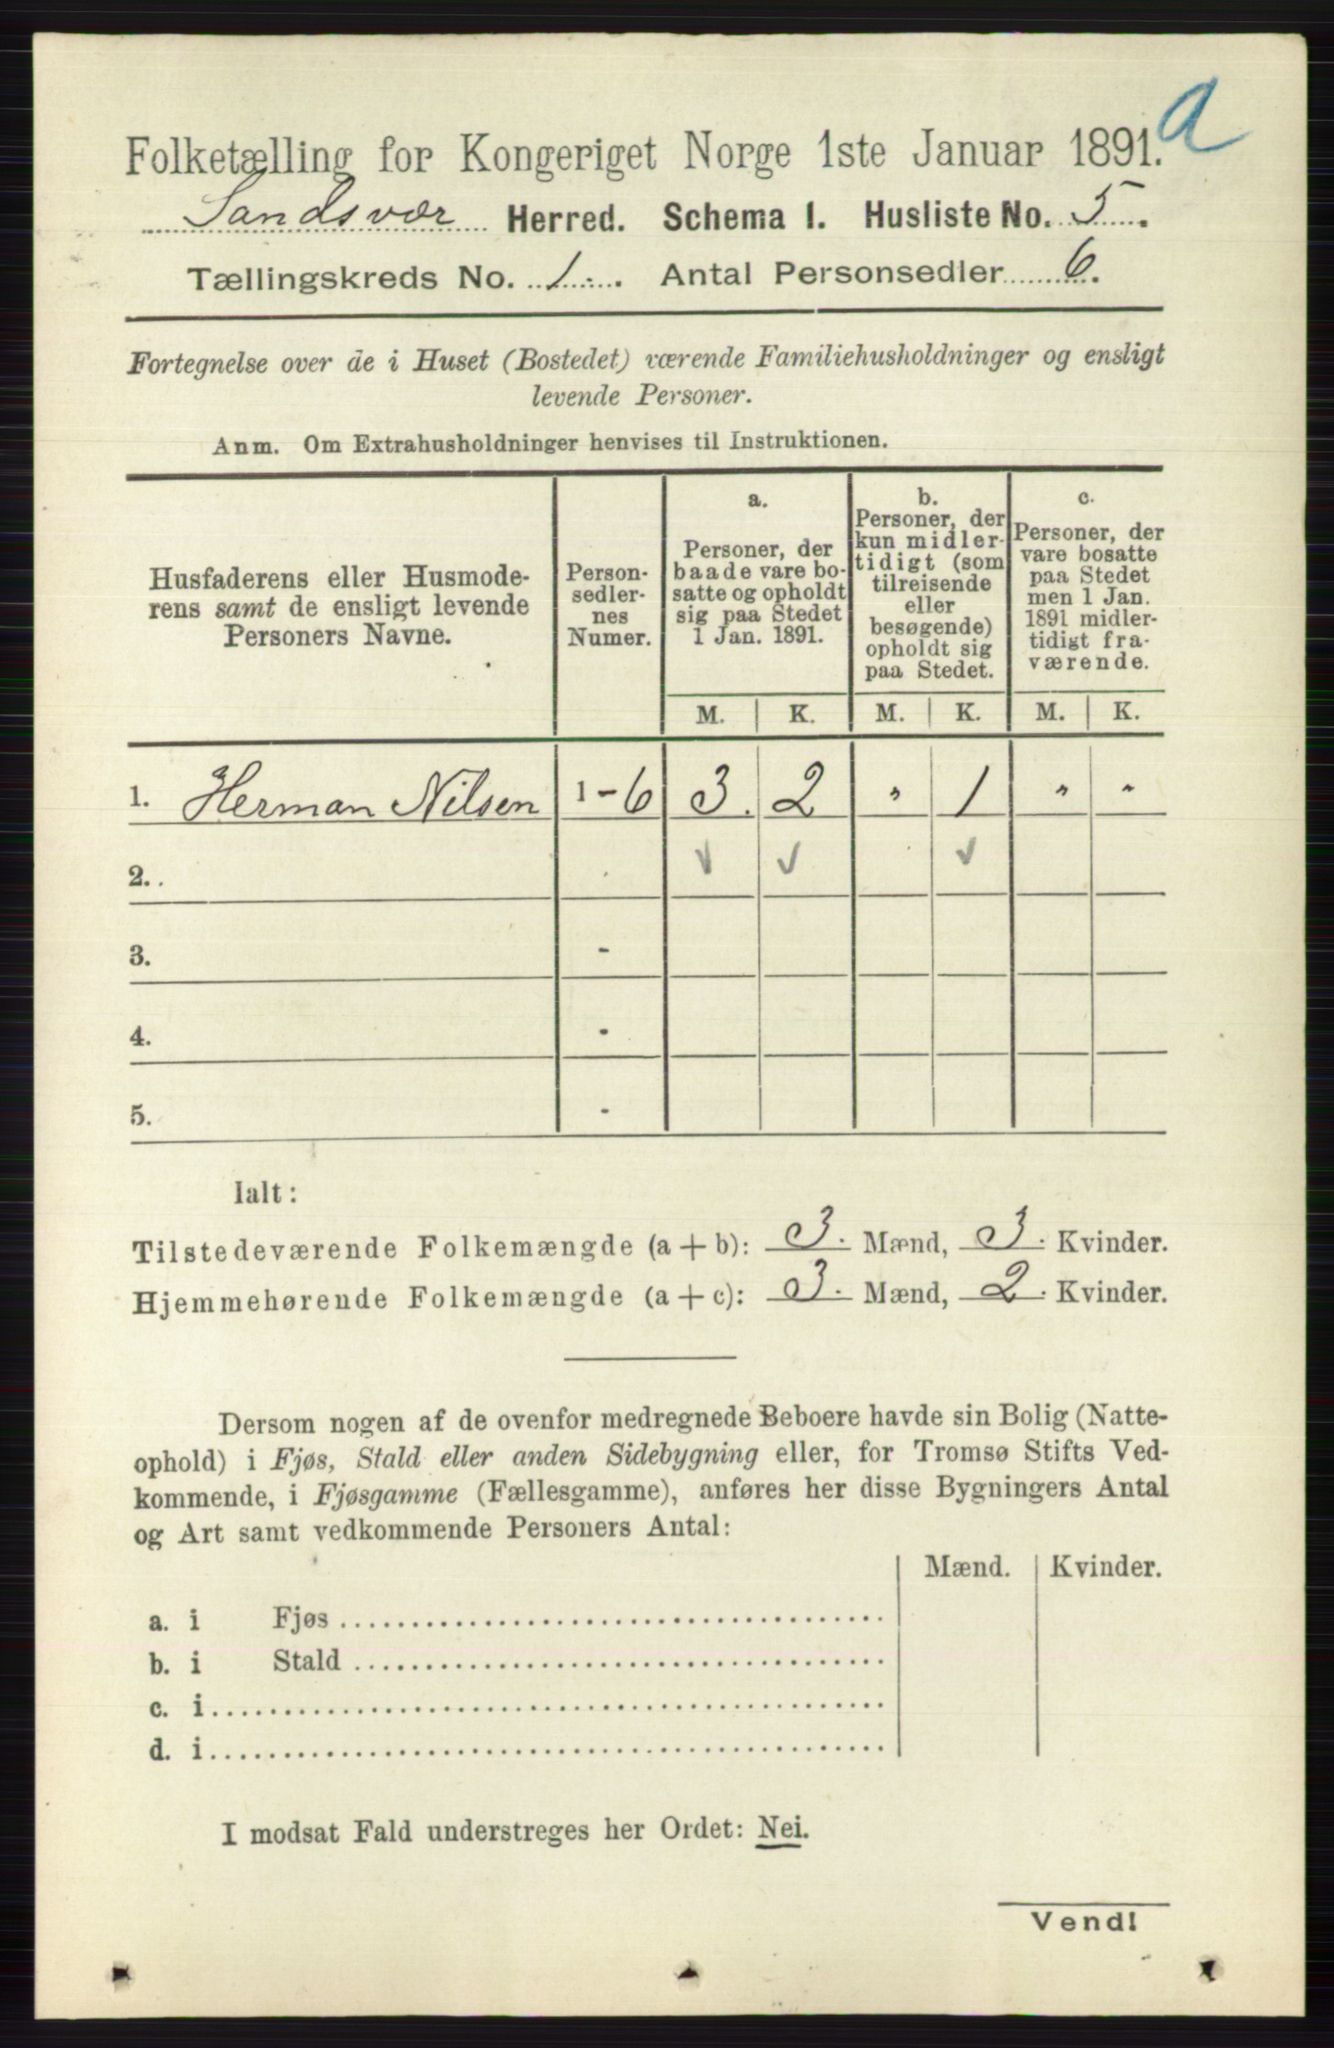 a
Folketælling for Kongeriget Norge 1ste Januar 1891.
Sandsvær Herred. Schema 1. Husliste No. 5.
Tællingskreds No. 1. Antal Personsedler 6.
Fortegnelse over de i Huset (Bostedet) værende Familiehusholdninger og ensligt
levende Personer.
Anm. Om Extrahusholdninger henvises til Instruktionen.
Husfaderens eller Husmode-
rens samt de ensligt levende
Personers Navne.
Person-
sedler-
nes
Numer.
a.
Personer, der
baade vare bo-
satte og opholdt
sig paa Stedet
1 Jan. 1891.
b.
Personer, der
kun midler-
tidigt (som
tilreisende
eller
besøgende)
opholdt sig
paa Stedet.
c.
Personer, der
vare bosatte
paa Stedet
men 1 Jan.
1891 midler-
tidigt fra-
værende.
M. K. M. K. M. K.
1. Herman Nilsen 1-6 3. 2 " 1 " "
2. ✓ ✓ ✓
3. -
4. -
5. -
Ialt:
Tilstedeværende Folkemængde (a + b): 3. Mænd, 3. Kvinder.
Hjemmehørende Folkemængde (a + c): 3. Mænd, 2. Kvinder.
Dersom nogen af de ovenfor medregnede Beboere havde sin Bolig (Natte-
ophold) i Fjøs, Stald eller anden Sidebygning eller, for Tromsø Stifts Ved-
kommende, i Fjøsgamme (Fællesgamme), anføres her disse Bygningers Antal
og Art samt vedkommende Personers Antal:
Mænd. Kvinder.
a. i Fjøs
b. i Stald
c. i
d. i
I modsat Fald understreges her Ordet: Nei.
Vend!